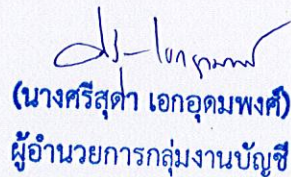 (นางศรีสุดา เอกอุดมพงศ์)
ผู้อำนวยการกลุ่มงานบัญชี